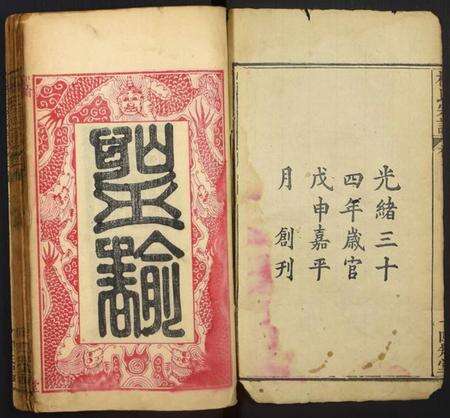 光緒三十
四年歲官
戊申嘉平
月創刊
聖諭